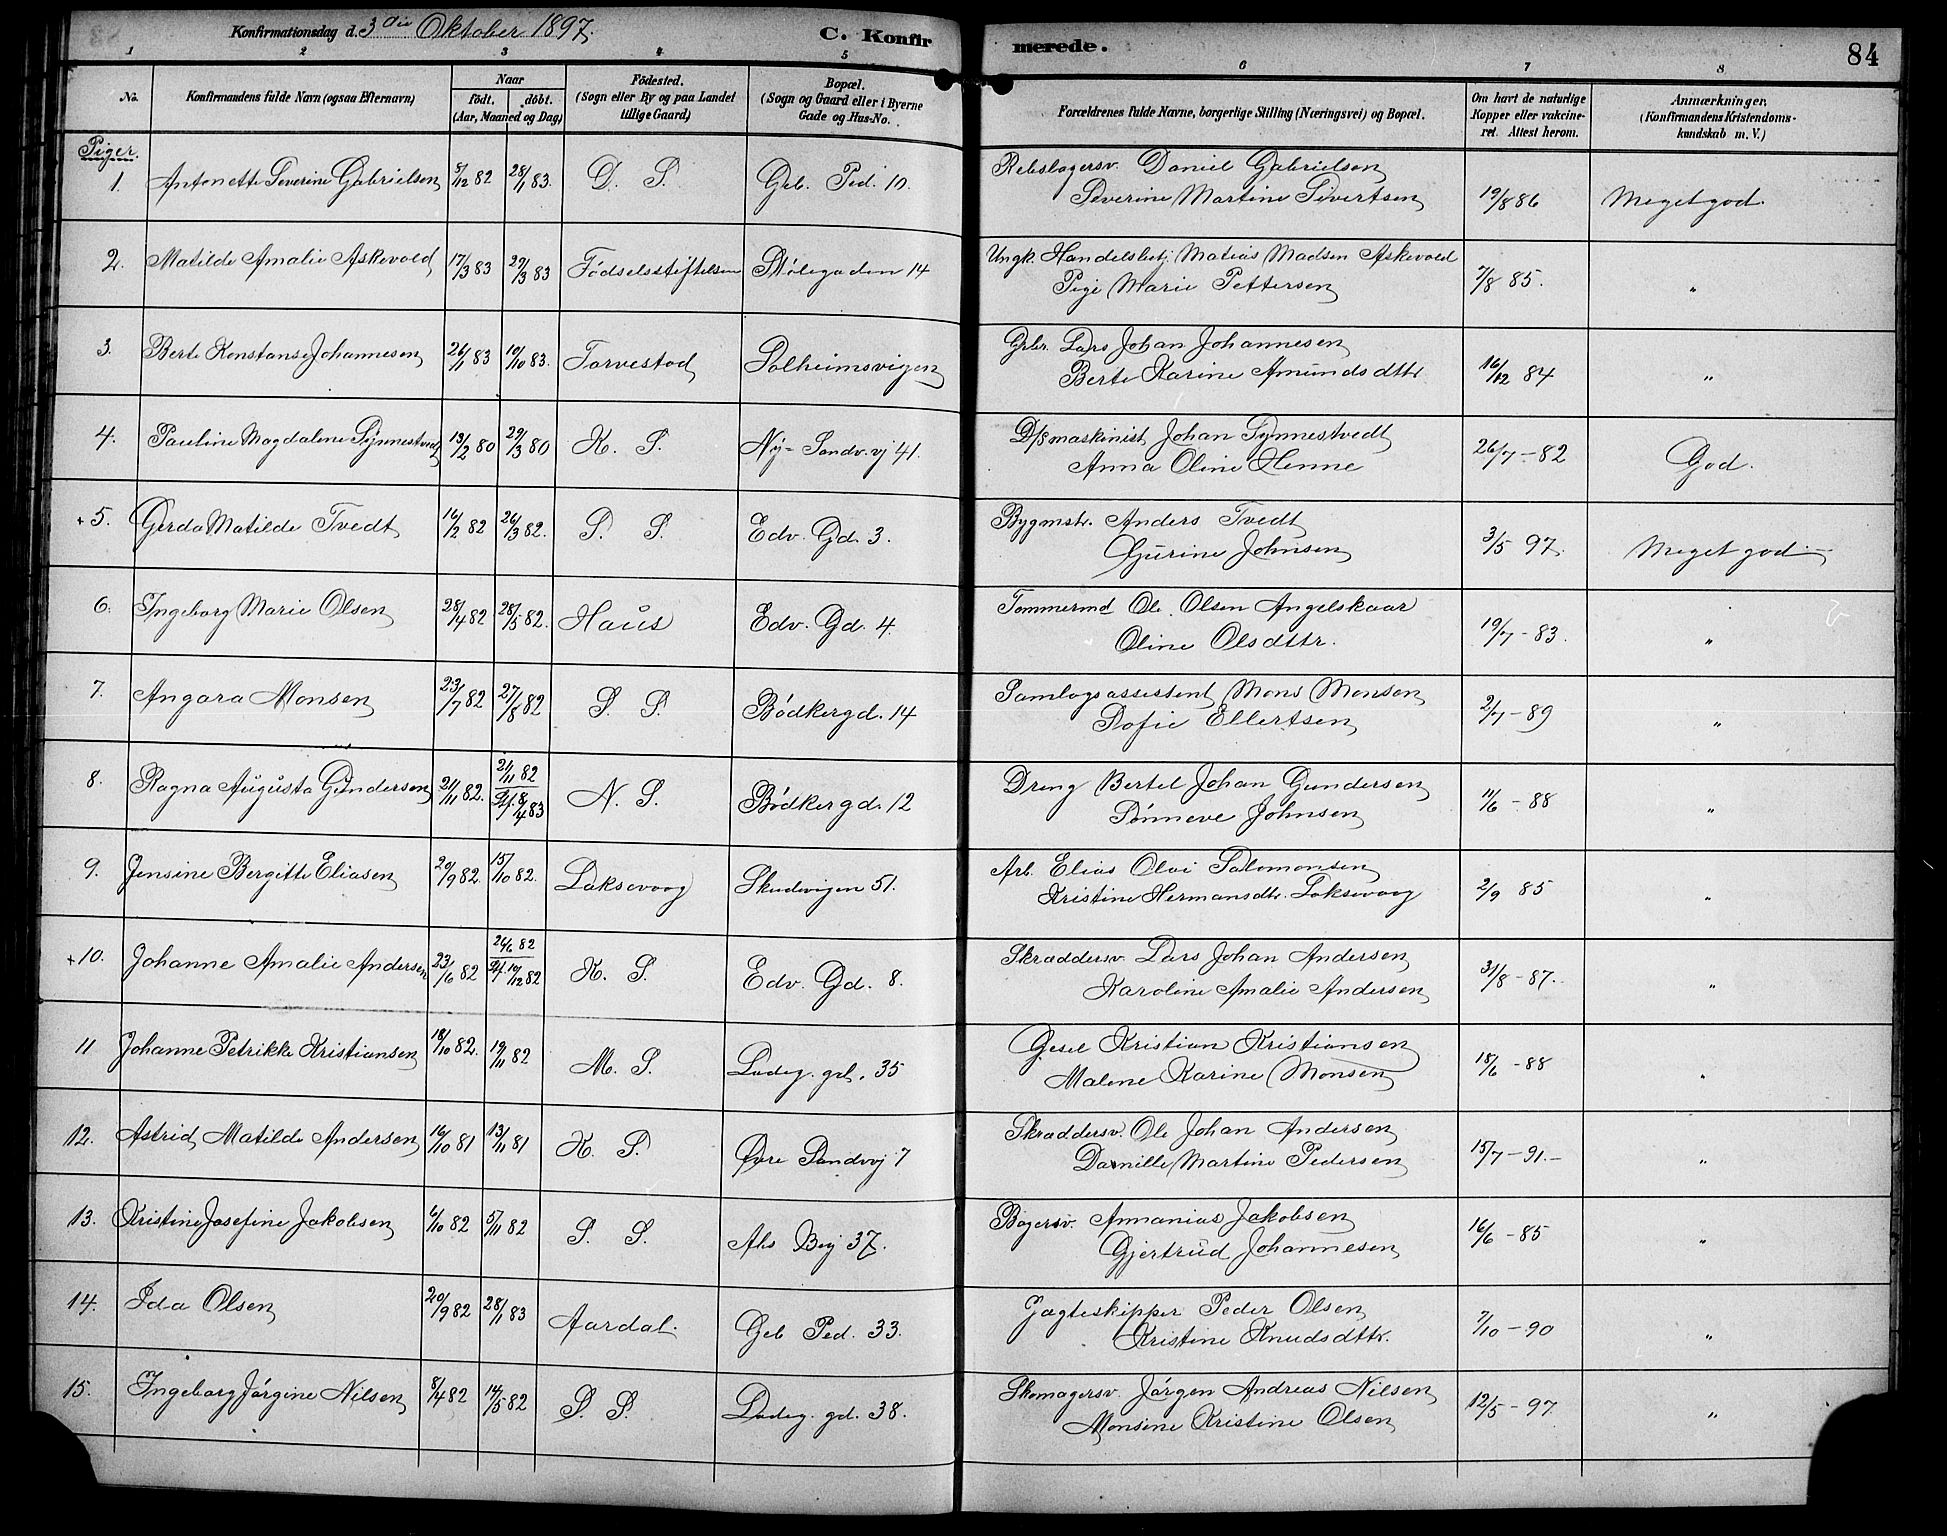 Konfirmationsdag d. 3die Oktober 1897.
C. Konfirmerede.
84
1 2 3 4 5 6 7 8
No.
Konfirmandens fulde Navn (ogsaa Efternavn)
Naar
födt. döbt.
(Aar, Maaned og Dag)
Födested.
(Sogn eller By og paa Landet
tillige Gaard)
Bopæl.
(Sogn og Gaard eller i Byerne
Gade og Hus-No.
Forældrenes fulde Navne, borgerlige Stilling (Næringsvei) og Bopæl.
Om havt de naturlige
Kopper eller vakcine-
ret. Attest herom.
Anmærkninger.
(Konfirmandens Kristendoms-
kundskab m. V.)
Piger.
1. Antonette Severine Gabrielsen 8/12 82 28/1 83. D. S. Geb. Ped. 10. Rebslagersv. Daniel Gabrielsen
Severine Martine Sivertsen 19/8 86 Meget god.
2. Matilde Amalie Askevold 17/3 83 29/3 83 Födselsstiftelsen Stölegaden 14 Ungk. Handelsbetj. Matias Madsen Askevold
Pige Marie Pettersen 7/8 85. "
3. Berte Konstanse Johannesen 26/1 83 10/10 83. Torvestad Solheimsvigen Lars Johan Johannesen
Berte Karine Amundsdttr 16/12 84 "
4. Pauline Magdalene Synnestvedt 13/2 80 29/3 80 K. S. Ny-Sandv.vj 41. D/s maskinist Johan Synnestvedt
Anna Oline Henne 26/7 - 82 God.
+ 5. Gerda Matilde Tvedt 16/2 82 26/3 82. S. S. Edv. Gd. 3. Bygmstr. Anders Tvedt
Gurine Johnsen 3/5 97. Meget god.
6. Ingeborg Marie Olsen 28/4 82 28/5 82. Haus Edv. Gd. 4. Tømmermd Ole Olsen Angelskaar
Oline Olsdttr. 19/7 - 83. "
7. Angara Monsen 23/7 82 27/8 82 S. S. Bödkergd. 14 Samlagsassistent Mons Monsen
Sofie Ellertsen 2/7 - 89 "
8. Ragna Augusta Gundersen 21/11 82. 21/11 82
St. 8/4 83 N. S. Bödkergd. 12 Dreng Bertel Johan Gundersen
Sönneve Johnsen 11/6 - 88 "
9. Jensine Bergitte Eliasen 20/9 82 15/10 82. Laksevaag Skudevigen 51. Arb. Elias Olai Salomonsen
Kristine Hermansdtr. Laksevaag 2/9 85 "
+ 10. Johanne Amalie Andersen 23/6 82 26/6 82
St. 10/12 82 K. S. Edv. Gd. 8. Skræddersv. Lars Johan Andersen
Karoline Amalie Andersen 31/8 - 87. "
11 Johanne Petrikke Kristiansen 18/10 82. 19/11 82 M. S. Ladeg. gd. 35 Gesel Kristian Kristiansen
Malene Karine Monsen 18/6 - 88 "
12. Astrid Matilde Andersen 16/10 81 13/11 81 K. S. Øvre Sandvj 7 Skræddersv. Ole Johan Andersen
Martine Pedersen 15/7 - 91. "
13. Kristine Josefine Jakobsen 6/10 82 5/11 82 S. S. Ahs Bej 37. Bagersv. Annanias Jakobsen
Gjertrud Johannesen 16/6 - 85 "
14. Ida Olsen 20/9 82 28/1 83 Aardal. Geb Ped. 33. Jægteskipper Peder Olsen
Kristine Knudsdttr. 7/10 - 90 "
15. Ingeborg Jörgine Nilsen 8/4 82 14/5 82 S. S. Ladeg. gd. 38. Skomagersv. Jörgen Andreas Nilsen
Monsine Kristine Olsen 12/5 - 97 "